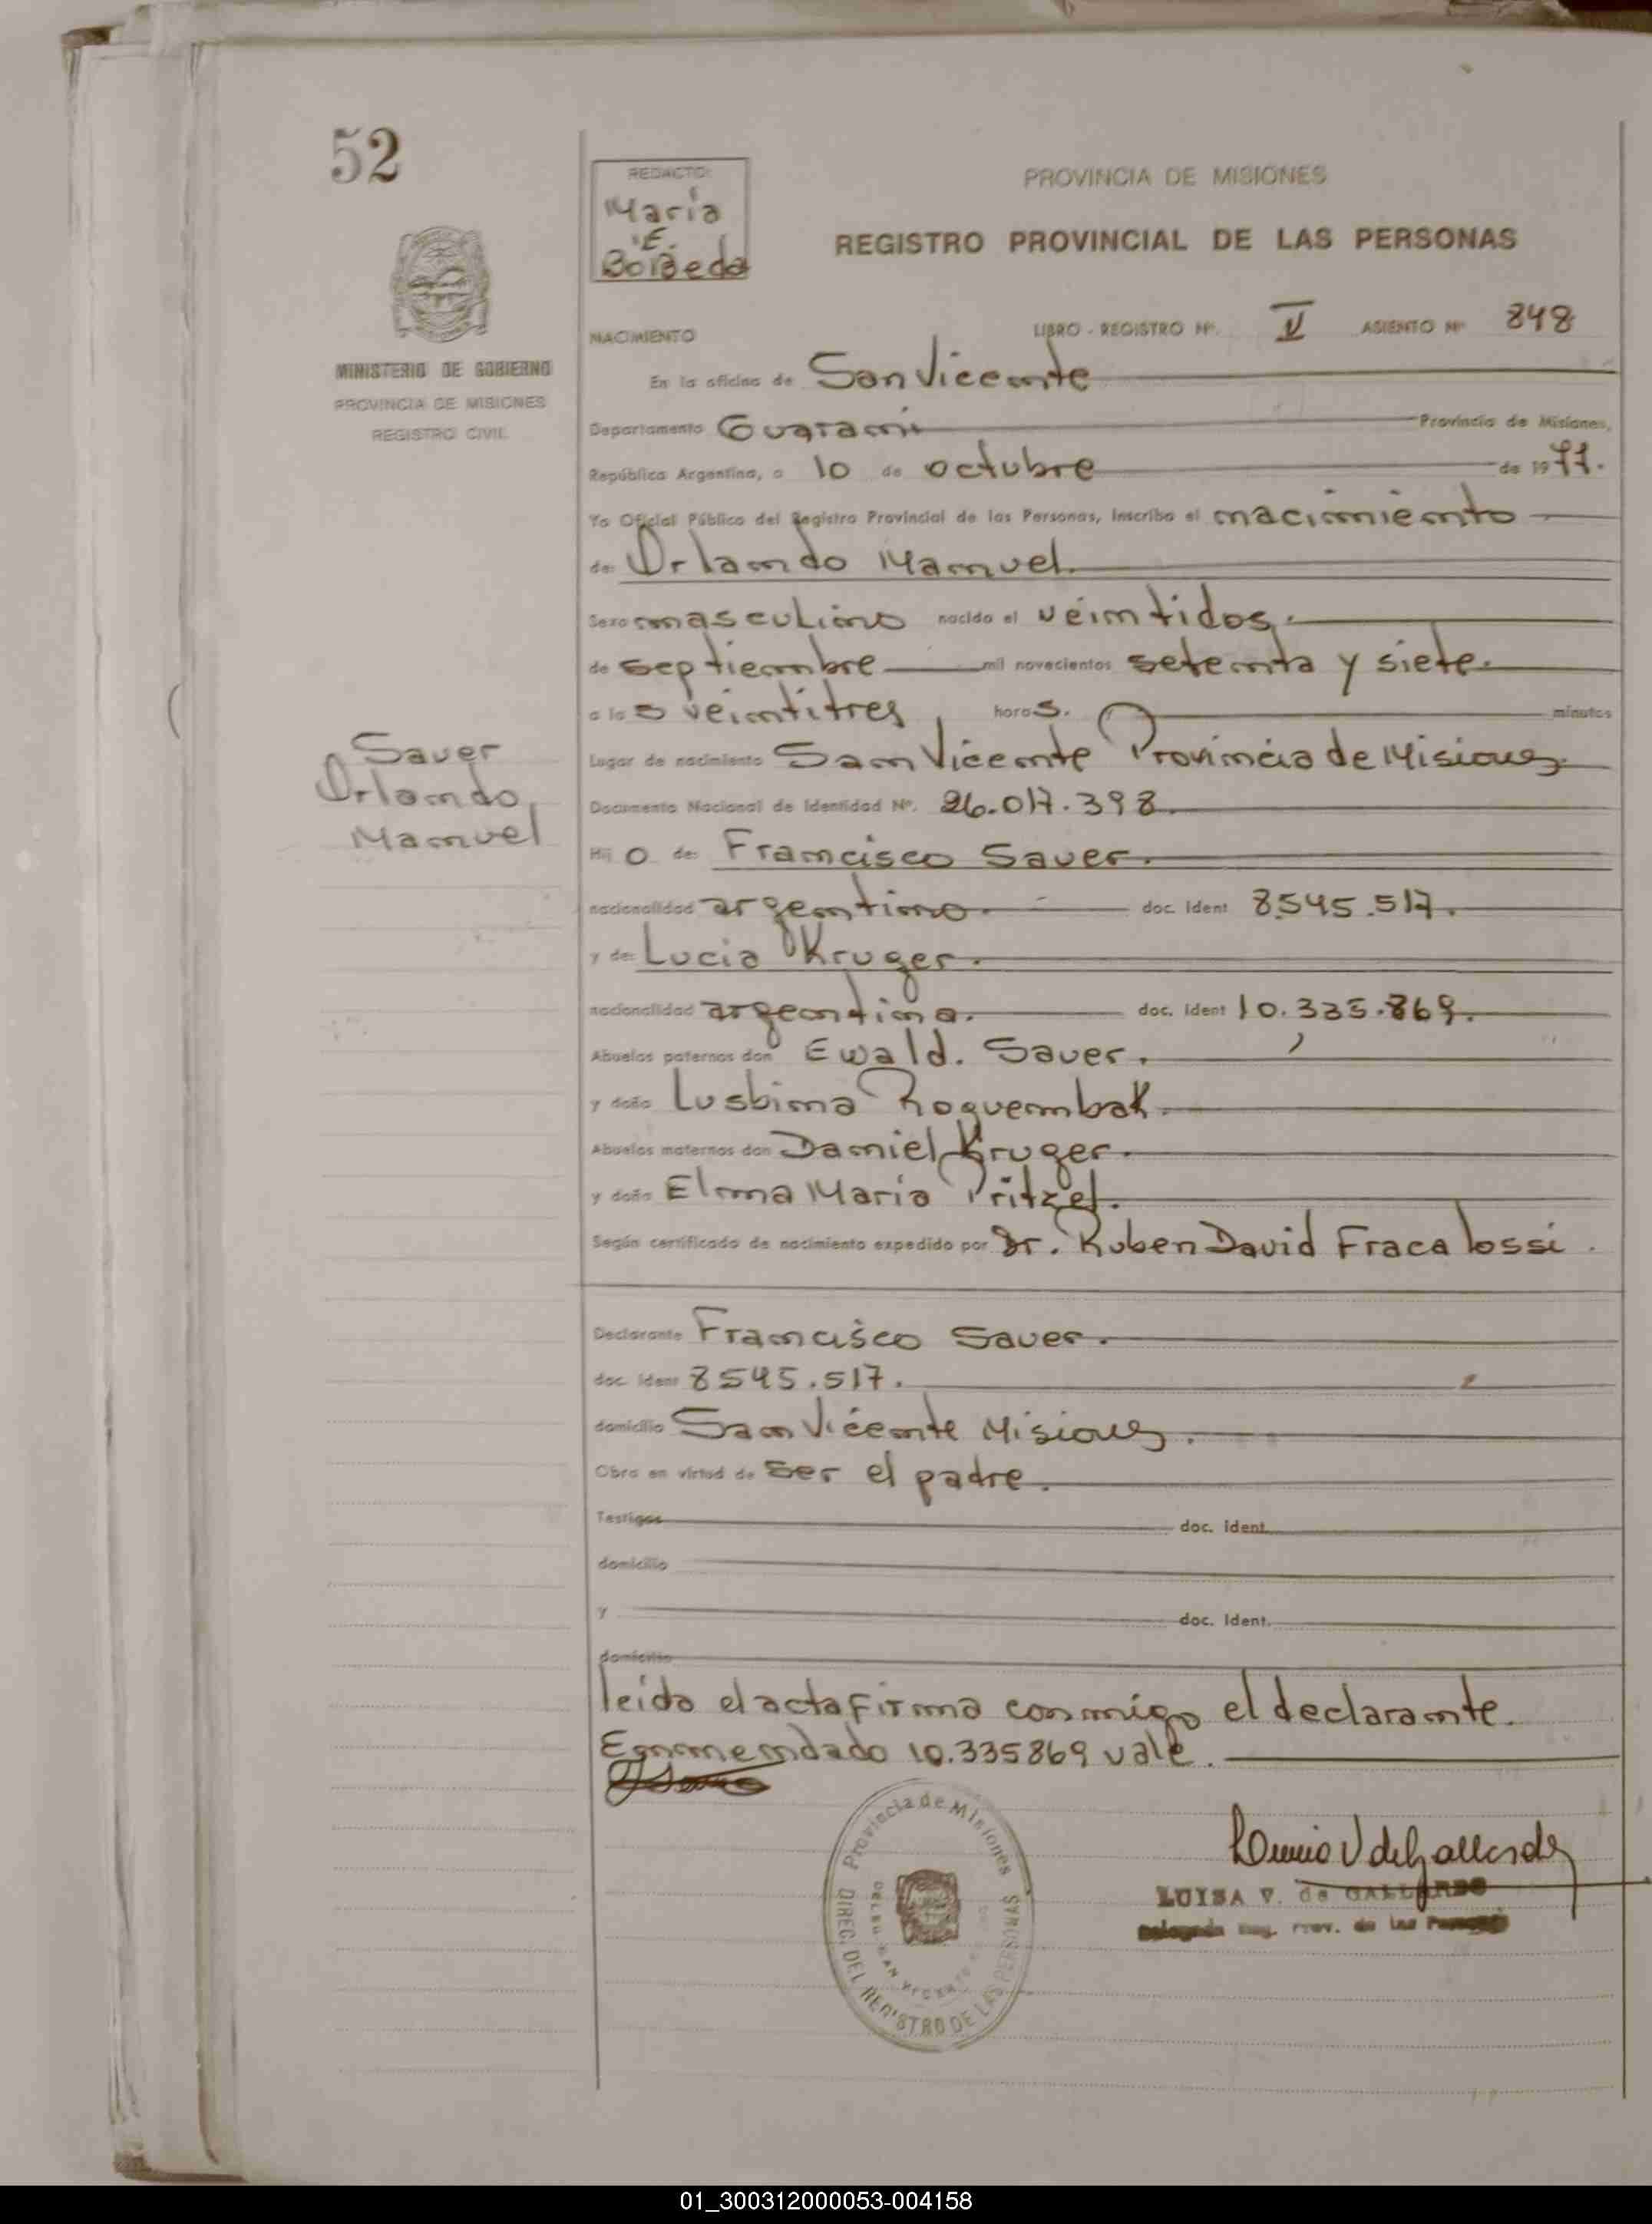 52
REDACTO:
Maria
E.
Borjeda
PROVINCIA DE MISIONES
REGISTRO PROVINCIAL DE LAS PERSONAS
MINISTERIO DE GOBIERNO
PROVINCIA DE MISIONES
REGISTRO CIVIL
NACIMIENTO LIBRO - REGISTRO Nº. II ASIENTO Nº 848
En la oficina de San Vicente
Departamento Guarani Provincia de Misiones,
República Argentina, a 10 de octubre de 1977.
Yo Oficial Público del Registro Provincial de las Personas, inscribo el nacimiento
de: Orlando Manuel.
Sexo masculino nacido el veintidos.
de septiembre mil novecientos setenta y siete.
a las veintitres, horas. minutos
Sauer
Orlando,
Manuel
Lugar de nacimiento San Vicente Provincia de Misiones.
Documento Nacional de Identidad Nº. 26.017.398.
Hijo de: Francisco Sauer.
nacionalidad argentino. doc. Ident 8.545.517.
y de: Lucia Kruger.
nacionalidad argentina. doc. Ident 10.335.869.
Abuelos paternos don Ewald. Sauer.
y doña Lusbina Roguembak.
Abuelos maternos don Daniel Kruger.
y doña Elma Maria Pritzel.
Según certificado de nacimiento expedido por Dr. Ruben David Fracalossi.
Declarante Francisco Sauer.
doc. Ident 8545.517.
domicilio San Vicente Misiones.
Obra en virtud de ser el padre.
Testigos doc. Ident.
domicilio
y doc. Ident.
domicilio
leida el acta firma conmigo el declarante.
Enmendado 10.335869 vale.
Provincia de Misiones
DIREC. DEL REGISTRO DE LAS PERSONAS
SAN VICENTE
LUISA V. de GALLARDO
Delegada Reg. Prov. de las
01_300312000053-004158